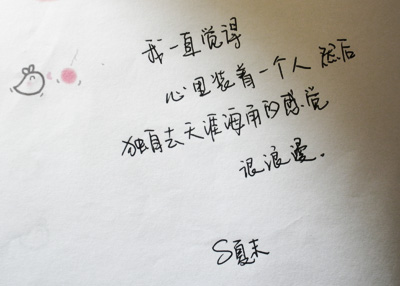 我一直觉得
心里装着一个人 然后
独自去天涯海角的感觉
很浪漫.
S夏末